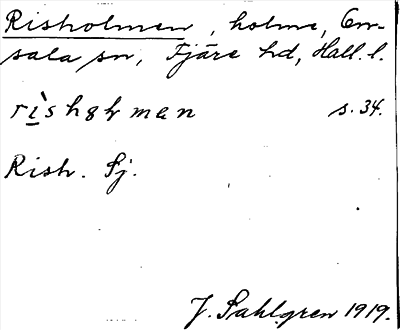 Risholmen, holme, On-
sala sn, Fjäre hd, Hall. l.
rìshǫlmen s. 34.
Rish. Sj.
J. Sahlgren 1919.